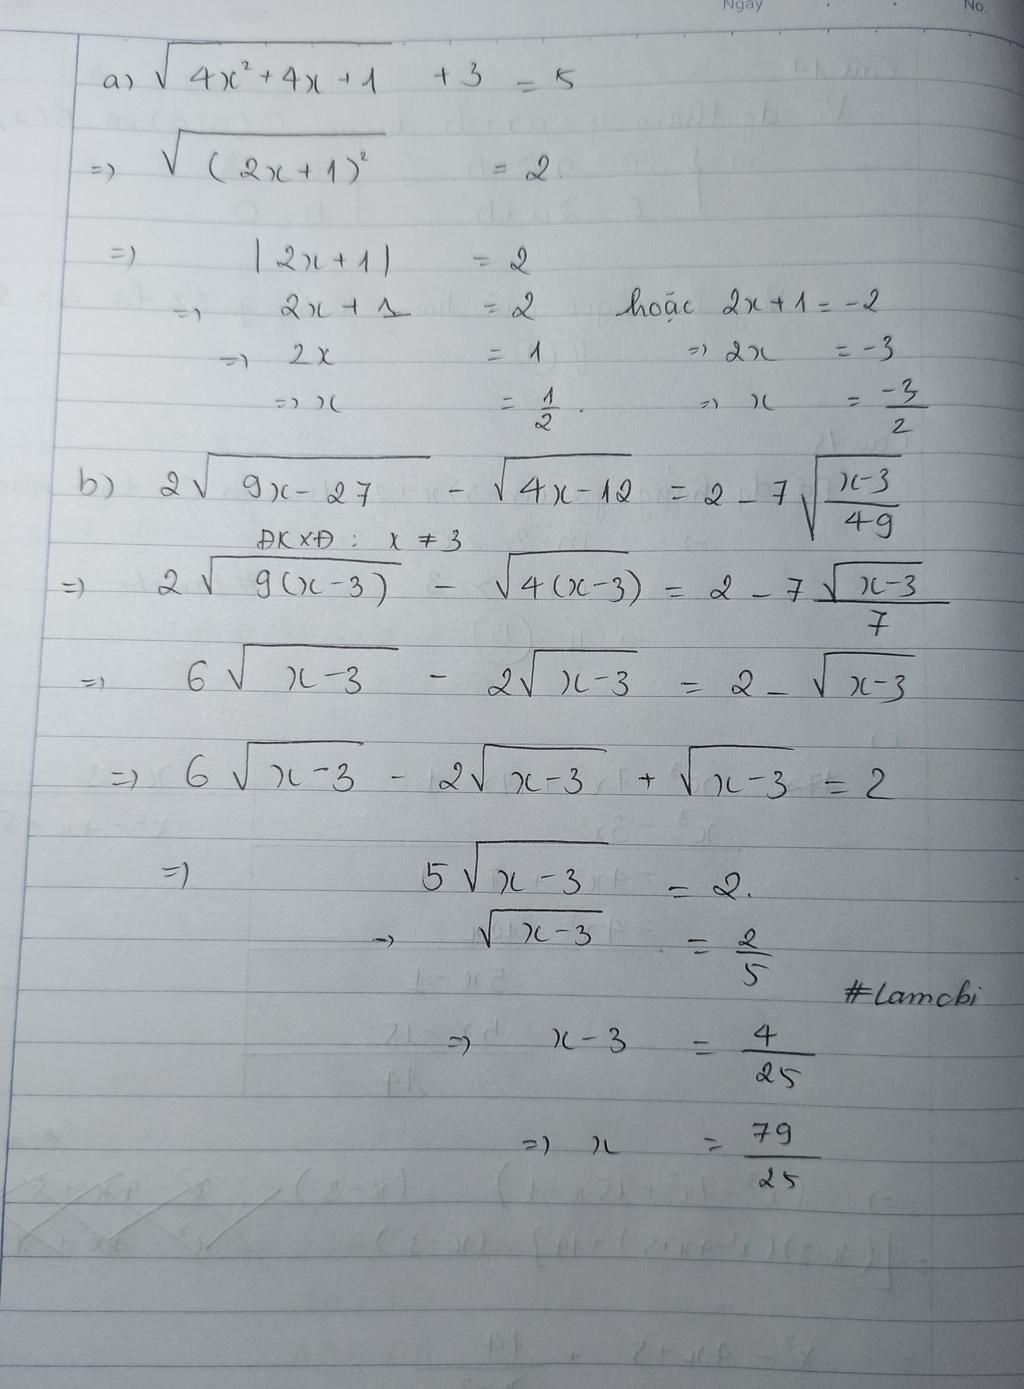 Ngày No.
a) √(4x² + 4x + 1) + 3 = 5
=> √((2x + 1)²) = 2
=> |2x + 1| = 2
=> 2x + 1 = 2 hoặc 2x + 1 = -2
=> 2x = 1 => 2x = -3
=> x = 1/2 . => x = -3/2
b) 2√(9x - 27) - √(4x - 12) = 2 - 7√((x-3)/49)
ĐKXĐ : x ≠ 3
=> 2√(9(x-3)) - √(4(x-3)) = 2 - 7 √(x-3)/7
=> 6√(x-3) - 2√(x-3) = 2 - √(x-3)
=> 6√(x-3) - 2√(x-3) + √(x-3) = 2
=> 5√(x-3) = 2.
=> √(x-3) = 2/5
#Lamcbi
=> x - 3 = 4/25
=> x = 79/25